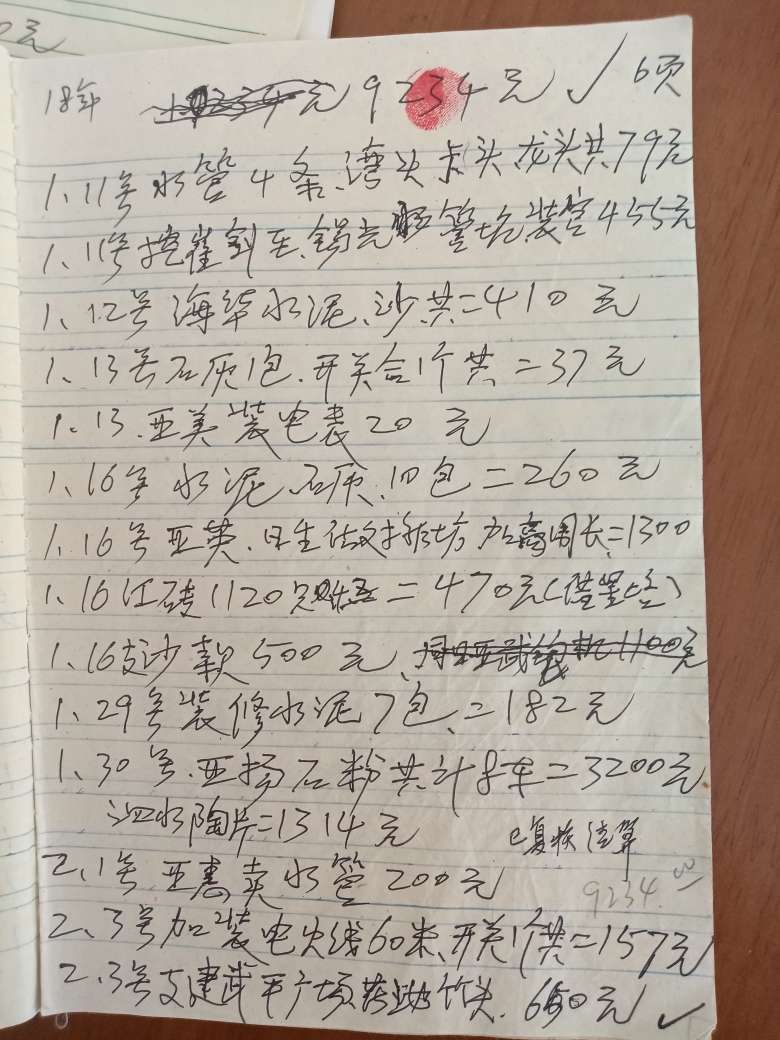 元
18年 9234元 ✓ 6页
1、11号水管4条、湾头卡头、龙头共79元
1、11号挖 管坑、装管455元
1、12号海华水泥、沙、共=410元
1、13号石灰1包、开关合1个共=37元
1、13、亚美装电表20元
1、16号水泥、石灰、10包=260元
1、16号亚英、日生 加高周长=1300
1、16红砖1120只 =470元
1、16支沙款500元、 1100元
1、29号装修水泥7包、=182元
1、30号、亚扬石粉共计8车=3200元
泗水陶片=1314元
已复核结算
2、1号亚惠卖水管200元
9234.00
2、3号加装电火线60米、开关1个共=157元
2、3号支建武平广场 竹头、650元 ✓